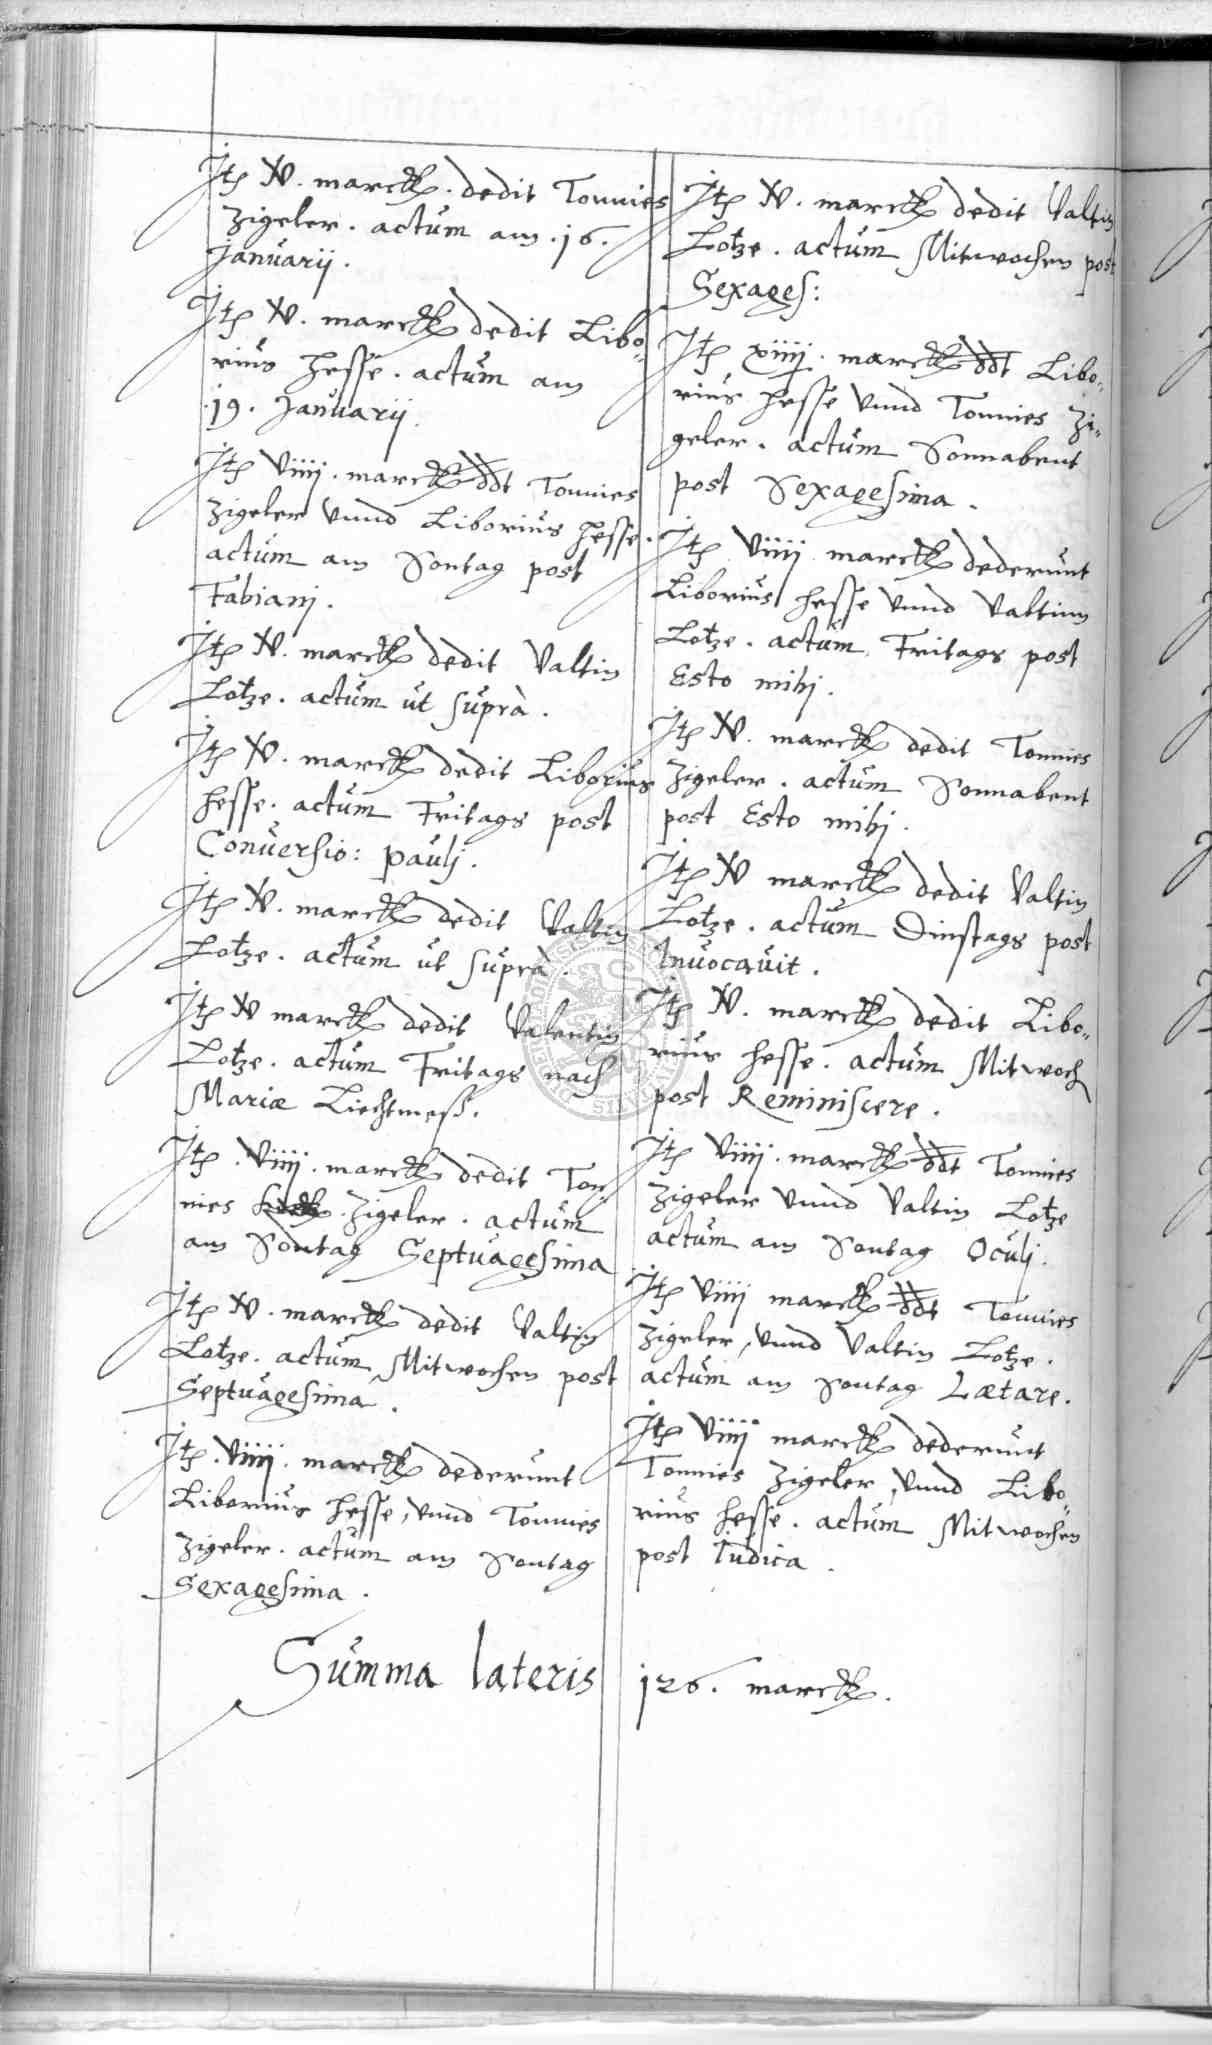 Jtem V. marck. dedit Tonnies
Zigeler. actum am .16.
Januarij.
Jtem V. marck dedit Libo-
rius Hesse. actum am
.19. Januarij.
Jtem viiij. marck ddt Tonnies
Zigeler vnnd Liborius Hesse.
actum am Sontag post
Fabianj.
Jtem V. marck dedit Valtin
Lotze. actum ut suprà.
Jtem V. marck dedit Liborius
Hesse. actum Fritags post
Conversio: paulj.
Jtem V. marck dedit Valtin
Lotze. actum ut suprà.
Jtem V marck dedit Valentin
Lotze. actum Fritags nach
Mariæ Liechtmess.
Jtem .viiij. marck dedit Ton
nies Zigeler. actum
am Sontag Septuagesima
Jtem V. marck dedit Valtin
Lotze. actum Mitwochen post
Septuagesima.
Jtem .viiij. marck dederunt
Liborius Hesse, vnnd Tonnies
Zigeler. actum am Sontag
Sexagesima.
Jtem V. marck dedit Valtin
Lotze. actum Mitwochen post
Sexages:
Jtem xiiij. marck ddt Libo-
rius Hesse vnnd Tonnies Zi-
geler. actum Sonnabent
post Sexagesima.
Jtem viiij marck dederunt
Liborius Hesse vnnd Valtinn
Lotze. actum Fritags post
Esto mihj.
Jtem V. marck dedit Tonnies
Zigeler. actum Sonnabent
post Esto mihj.
Jtem V marck dedit Valtin
Lotze. actum Dinstags post
Invocavit.
Jtem V. marck dedit Libo-
rius Hesse. actum Mitwoch
post Reminiscere.
Jtem viiij. marck ddt Tonnies
Zigeler vnnd Valtin Lotze
actum am Sontag Oculj.
Jtem viiij marck ddt Tonnies
Zigeler, vnnd Valtin Lotze.
actum am Sontag Lætare.
Jtem viiij marck dederunt
Tonnies Zigeler, vnnd Libo-
rius Hesse. actum Mitwochen
post Iudica.
Summa lateris 126. marck.